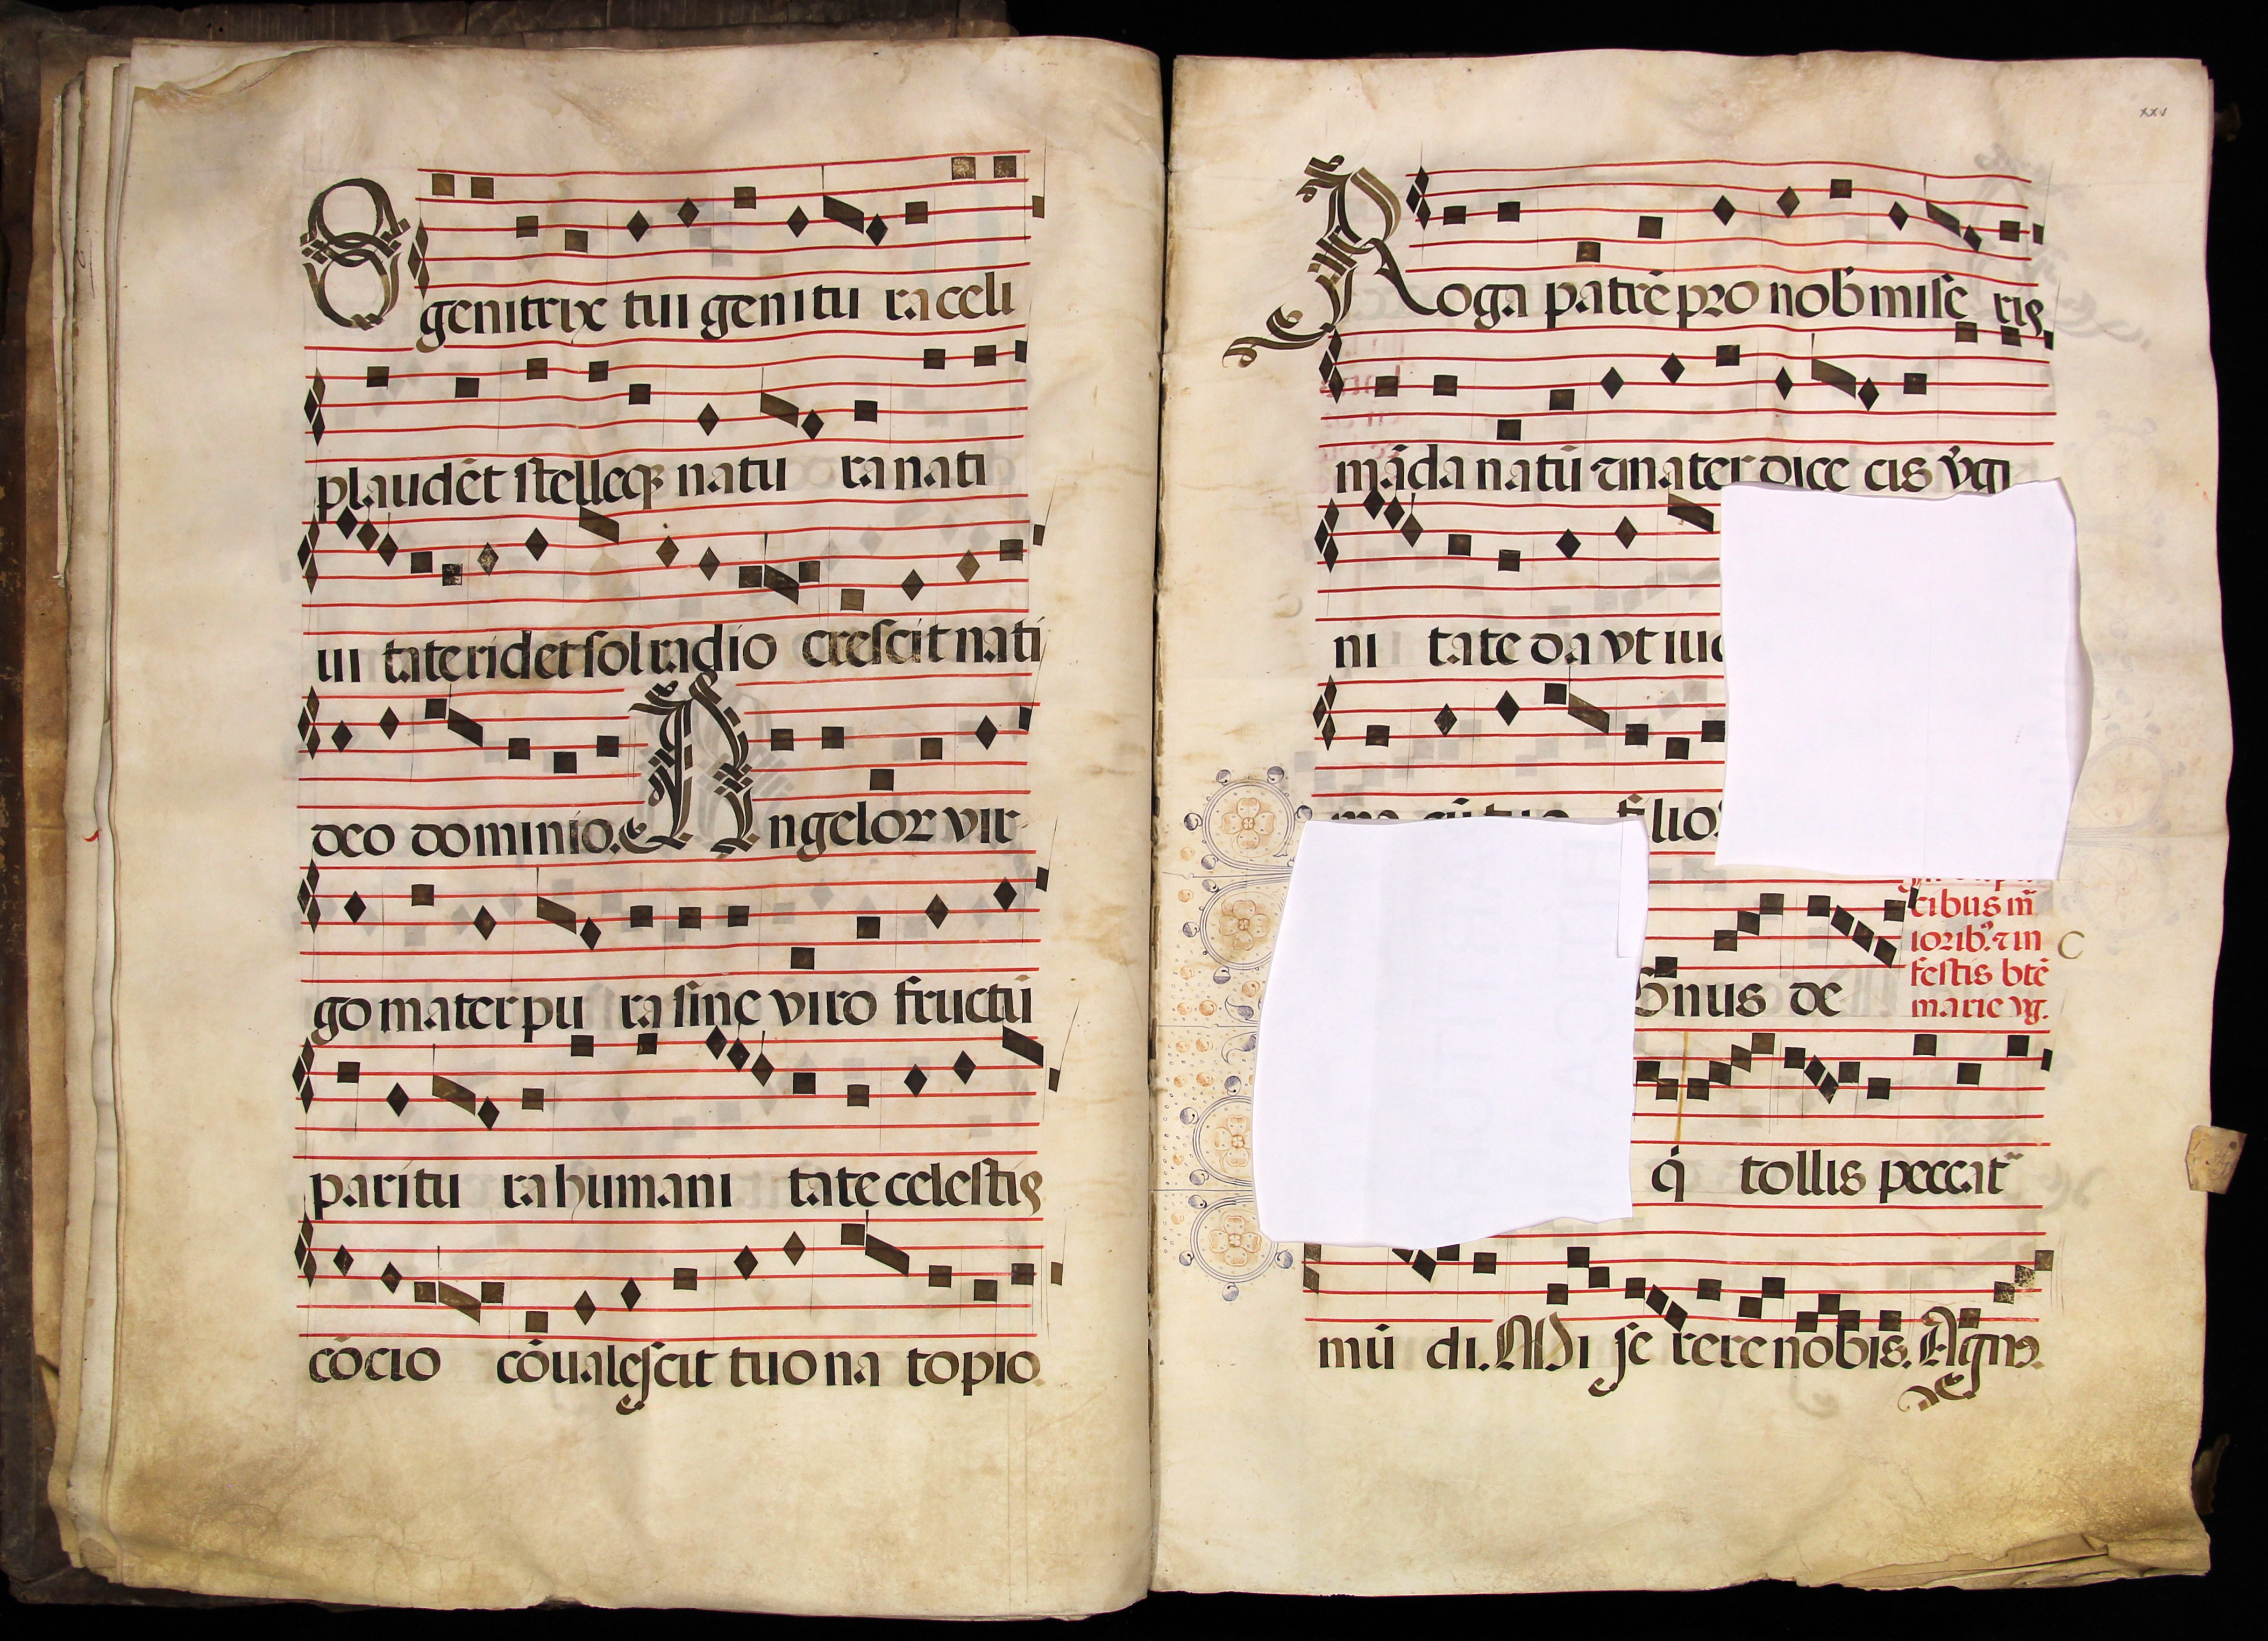 O genitrix tui genitu ra celi
plaudēt stelleqꝫ natu ra nati
ui tate ridēt sol radio crescit nati
deo dominio. Angeloꝝ vir
go mater pu ra sine viro fructū
paritu ra humani tate celestis
cōcio cōualescit tuo na to pio
xxv
Roga patrē pro nob̄ mise ris
māda natū ⁊ mater dice cis v̄gi
ni tate da vt
filio
cibus m̄
ioribꝰ. ⁊ in
festis btē
marie vg.
gnus de
q̇ tollis peccat
mū di. Mi se rere nobis. Agnꝰ